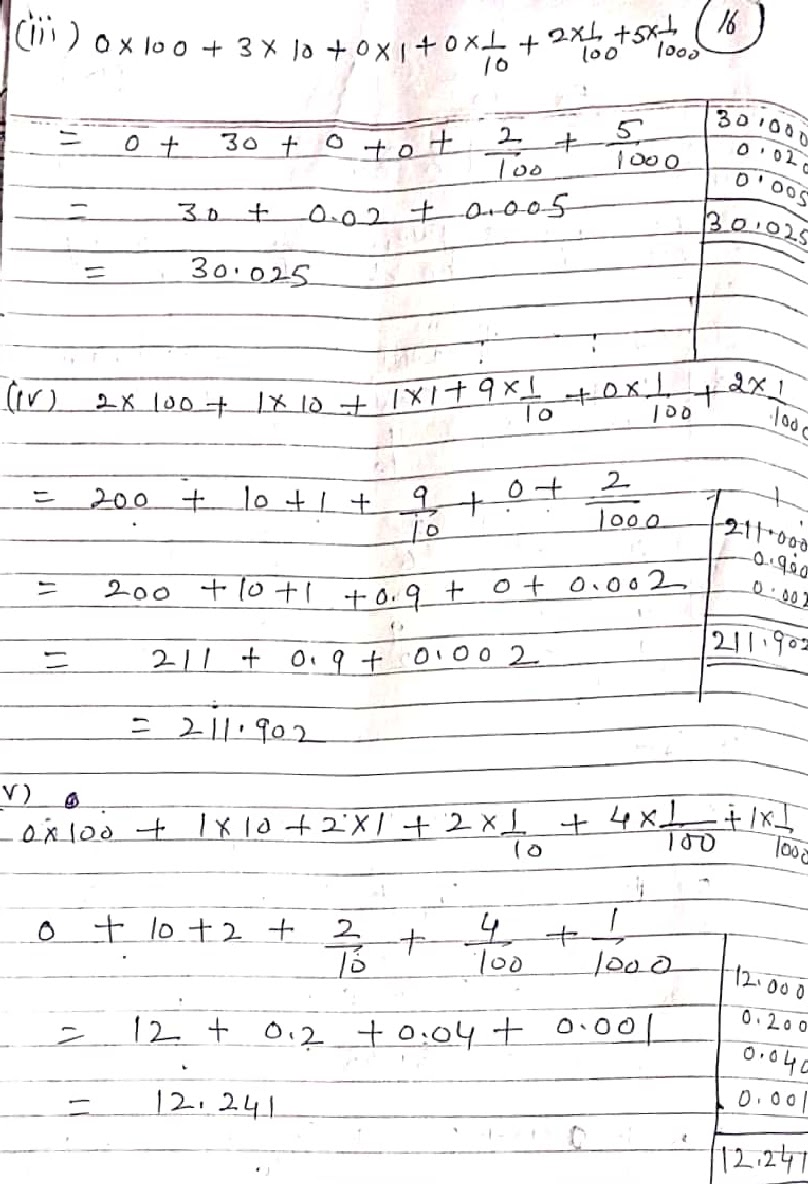 (iii) 0 x 100 + 3 x 10 + 0x1 + 0x1/10 + 2x1/100 + 5x1/1000 16
= 0 + 30 + 0 + 0 + 2/100 + 5/1000
= 30 + 0.02 + 0.005
= 30.025
30.000
0.020
0.005
30.025
(iv) 2x 100 + 1x 10 + 1x1 + 9x1/10 + 0x1/100 + 2x1/1000
= 200 + 10 + 1 + 9/10 + 0 + 2/1000
= 200 + 10 + 1 + 0.9 + 0 + 0.002
= 211 + 0.9 + 0.002
= 211.902
211.000
0.900
0.002
211.902
v)
0x100 + 1x10 + 2x1 + 2x1/10 + 4x1/100 + 1x1/1000
0 + 10 + 2 + 2/10 + 4/100 + 1/1000
= 12 + 0.2 + 0.04 + 0.001
= 12.241
12.000
0.200
0.040
0.001
12.241